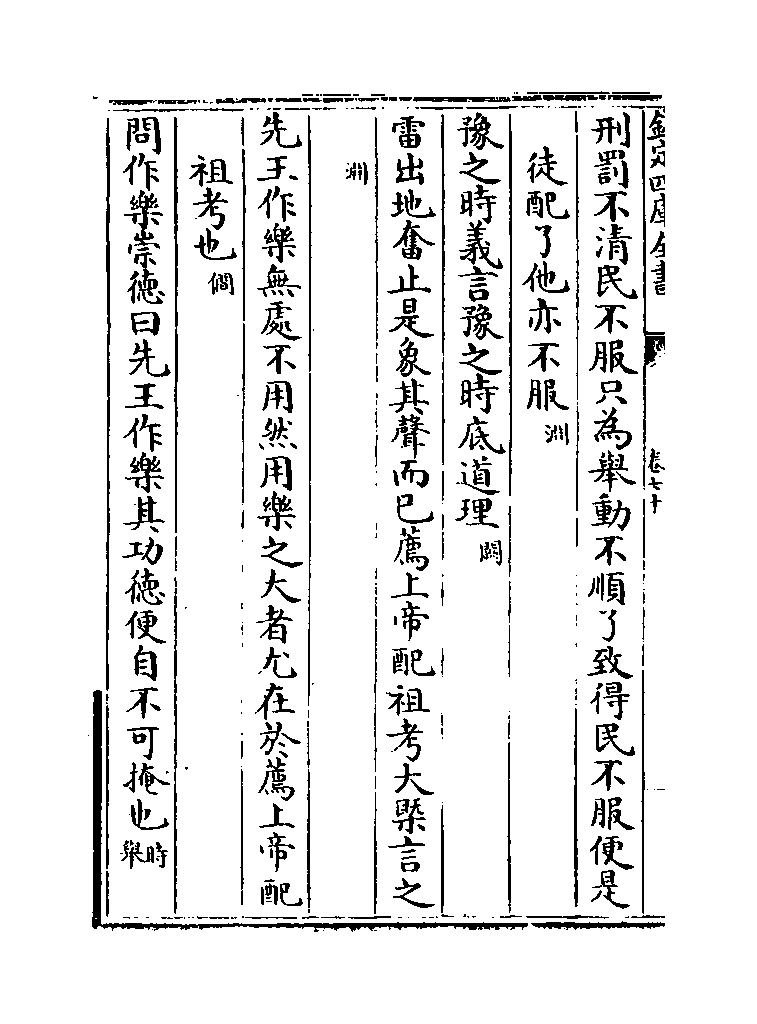 欽定四庫全書
卷七十
刑罰不清民不服只為舉動不順了致得民不服便是
徒配了他亦不服淵
豫之時義言豫之時底道理
雷出地奮止是象其聲而已薦上帝配祖考大槩言之
淵
先王作樂無處不用然用樂之大者尤在於薦上帝配
祖考也僩
問作樂崇德曰先王作樂其功德便自不可掩也時舉